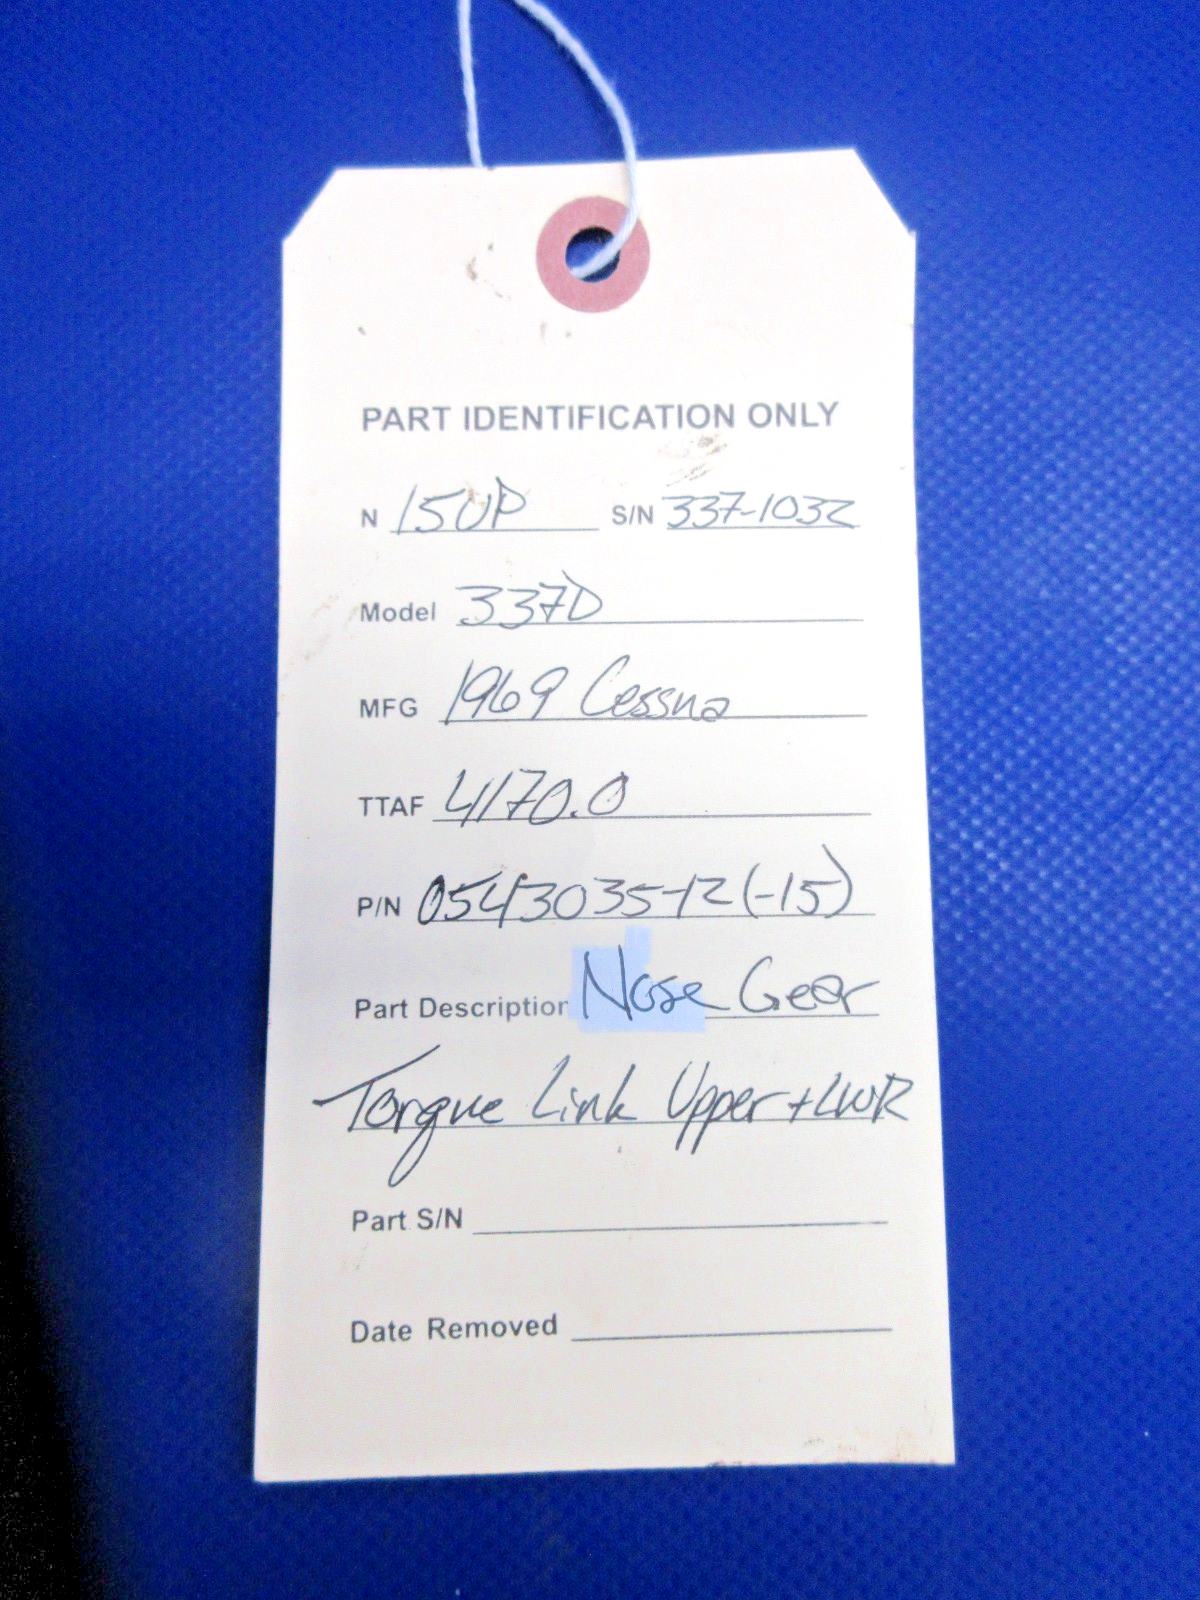 PART IDENTIFICATION ONLY
N 15UP S/N 337-1032
Model 337D
MFG 1969 Cessna
TTAF 4170.0
P/N 0543035-12 (-15)
Part Description Nose Gear
Torque Link Upper + LWR
Part S/N
Date Removed